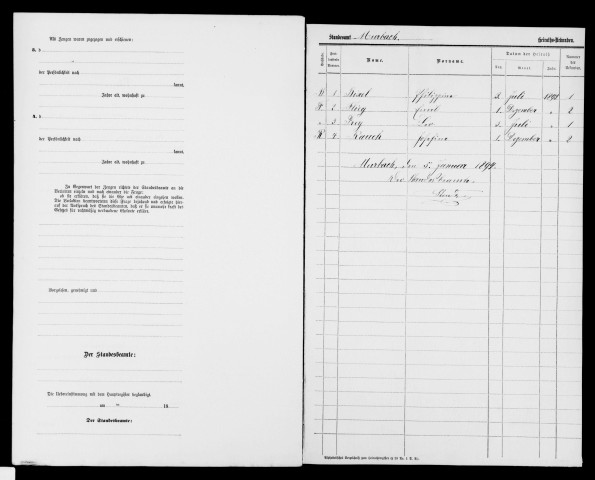 Als Zeugen waren zugegen und erschienen:
der Persönlichkeit nach
kannt,
Jahre alt, wohnhaft zu
der Persönlichkeit nach
kannt,
Jahre alt, wohnhaft zu
In Gegenwart der Zeugen richtete der Standesbeamte an die
Verlobten einzeln und nach einander die Frage:
ob sie erklären, daß sie die Ehe mit einander eingehen wollen.
Die Verlobten beantworteten diese Frage bejahend und erfolgte hier-
auf der Ausspruch des Standesbeamten, daß er sie nunmehr kraft des
Gesetzes für rechtmäßig verbundene Eheleute erkläre.
Vorgelesen, genehmigt und
Der Standesbeamte:
Die Uebereinstimmung mit dem Hauptregister beglaubigt
am 18
Der Standesbeamte:
Standesamt Murbach. Heiraths-Urkunden.
Name. Vorname. Datum der Heirath
Tag. Monat. Jahr.
1 3. Juli 1893 1
2 1. Dezember " 2
" 3 3. Juli " 1
4 Rauch Josefina 1. Dezember " 2
Murbach, den 5. Januar 1894.
Der Standesbeamte